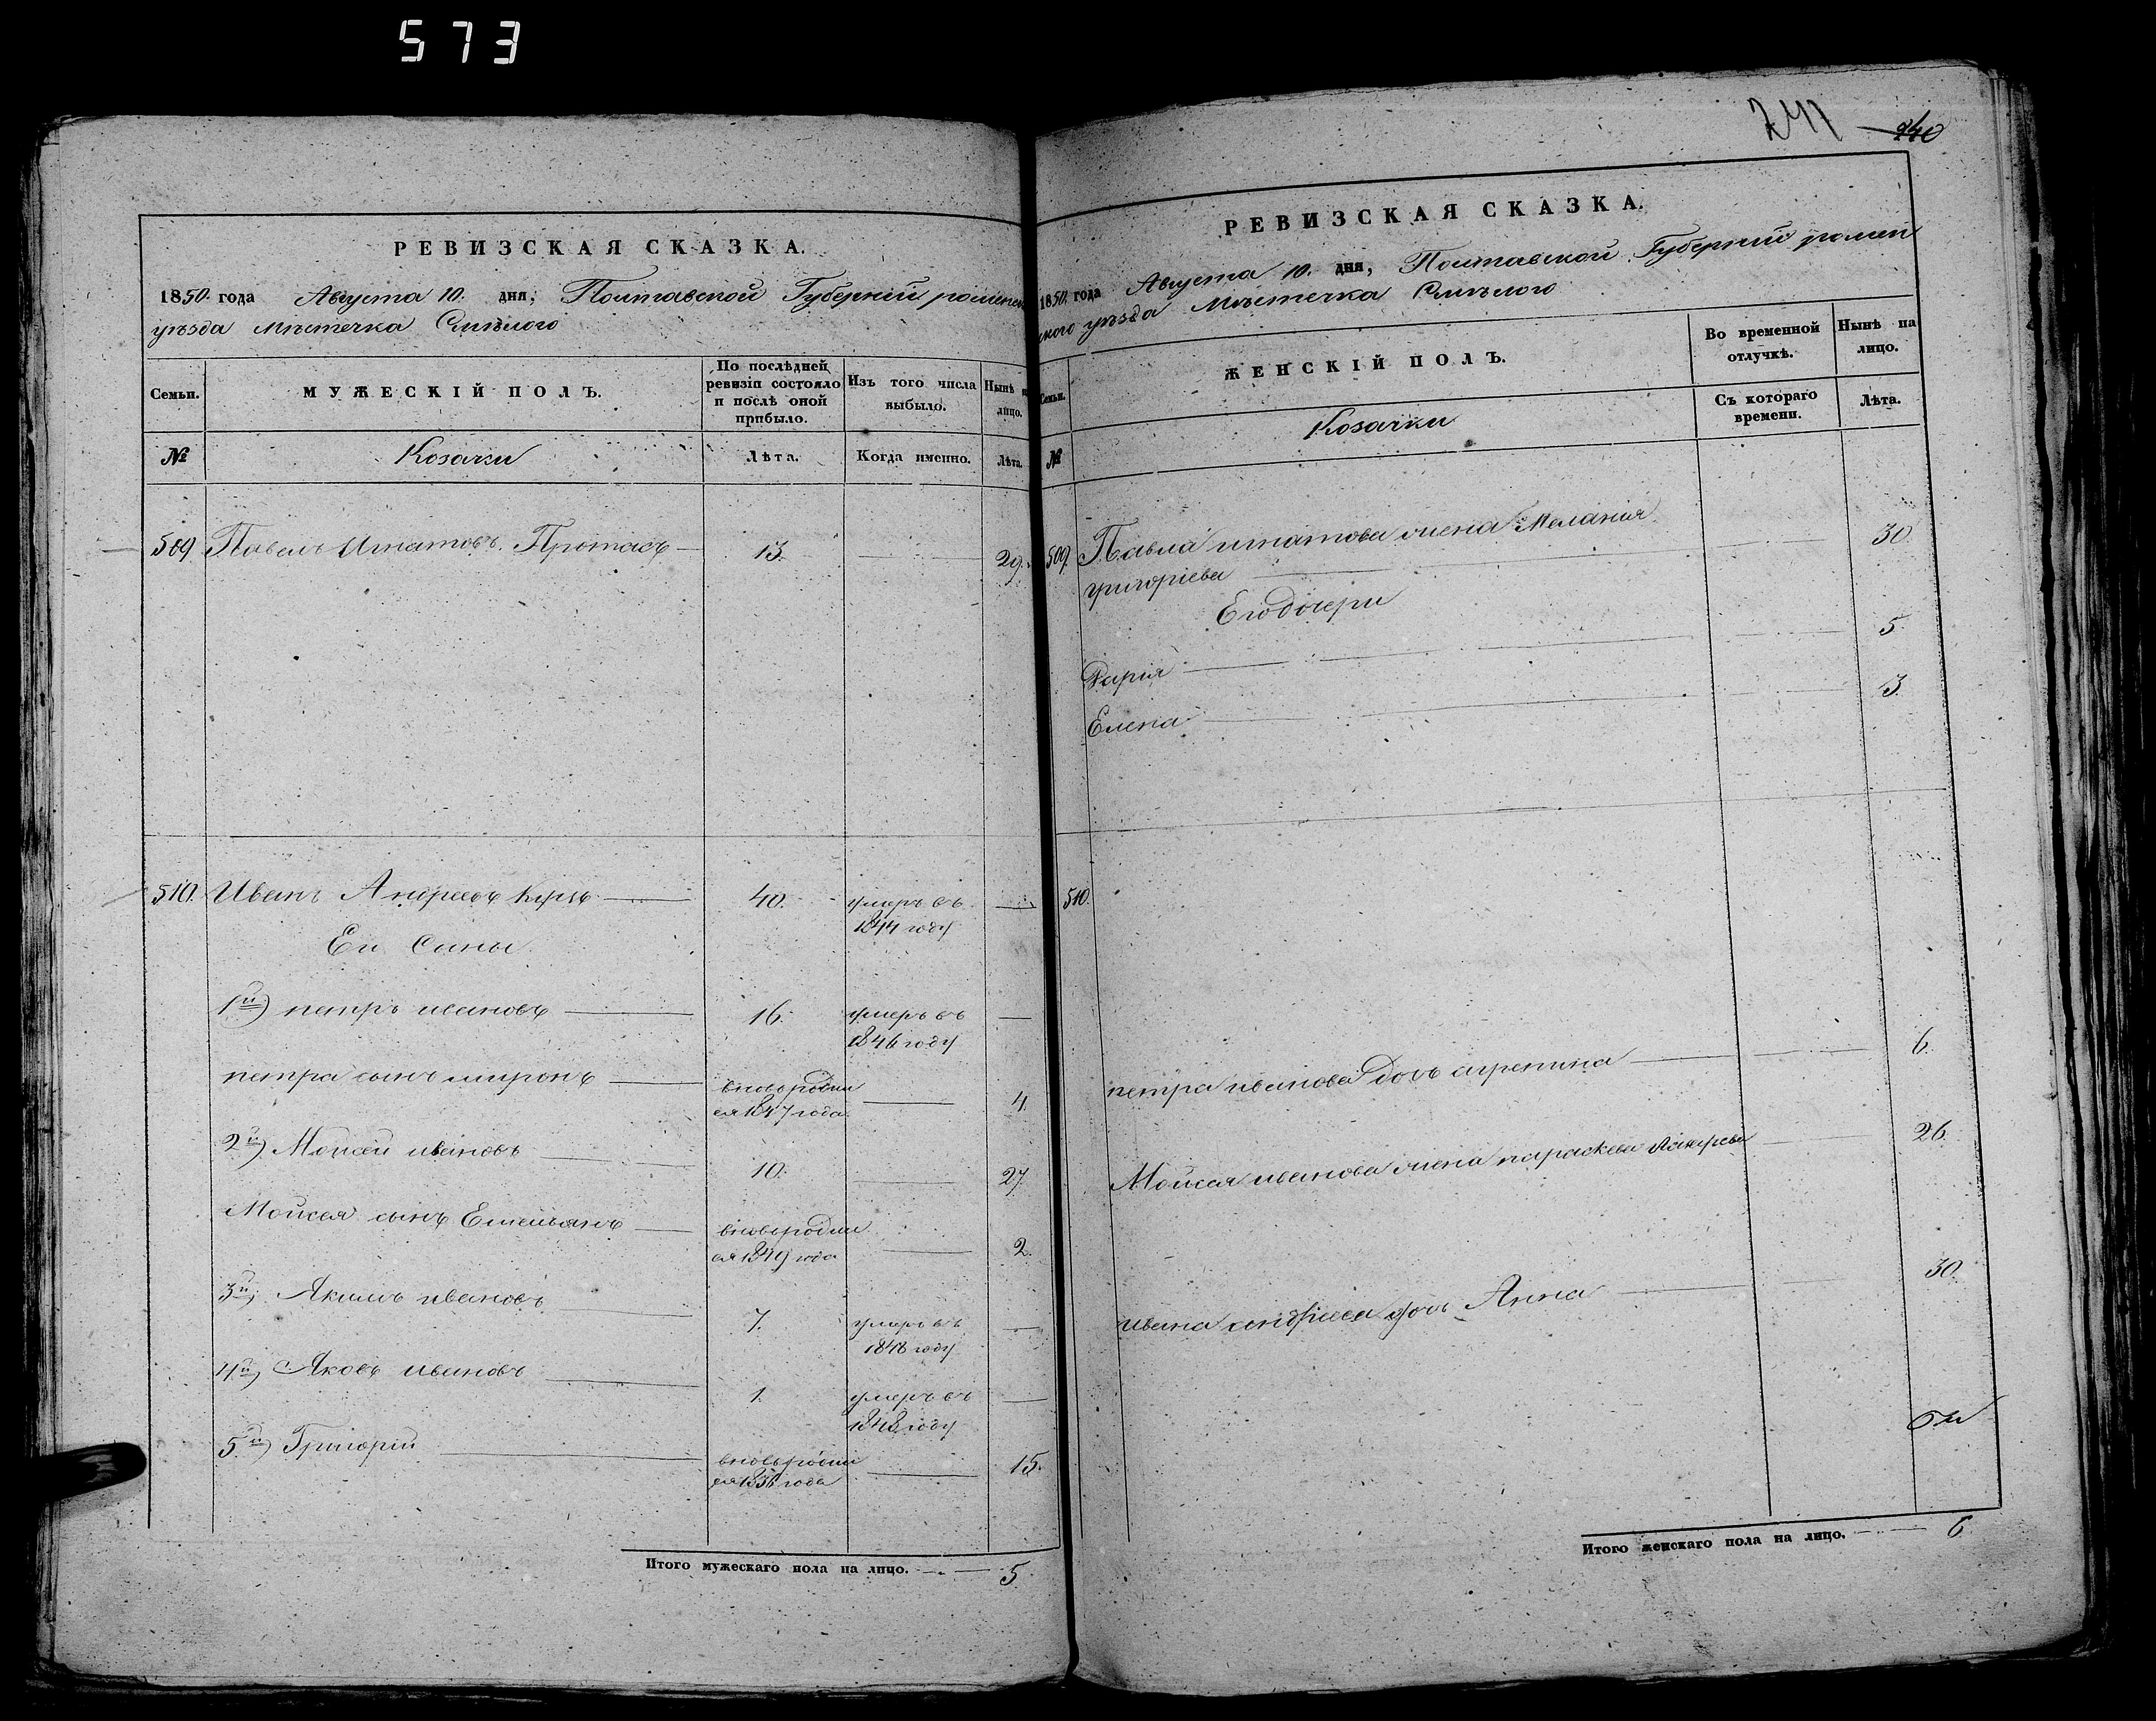 573
РЕВИЗСКАЯ СКАЗКА.
1850 года Августа 10. дня, Полтавской Губерніи роменск
уѣзда Мѣстечка Смѣлого
Семьи.
МУЖЕСКІЙ ПОЛЪ.
По послѣдней ревизіи состояло и послѣ оной прибыло.
Изъ того числа выбыло.
Нынѣ н лицо.
№
Козачки
Лѣта.
Когда именно.
Лѣта.
509 Павелъ Игнатовъ Протасъ 13. 29.
510. Иванъ Андреевъ 40. умеръ въ
1844 году
Ег Сины
1й) петръ ивановъ 16. умеръ въ
1846 году
петра сынъ миронъ вновьродил
ся 1847 года 4.
2й) Моисей ивановъ 10. 27.
Мойсея сынъ Емельянъ вновьродил
ся 1849 года 2.
3й) Акимъ ивановъ 7. умеръ въ
1848 году
4й) Яковъ ивановъ 1. умеръ въ
1848 году
5й) Григорій вновьродил
ся 1836 года 15.
Итого мужескаго пола на лицо. 5
241 240
РЕВИЗСКАЯ СКАЗКА.
1850 года Августа 10. дня, Полтавской Губерніи ромен
ского уѣзда Мѣстечка Смѣлого
Семьи.
ЖЕНСКІЙ ПОЛЪ.
Во временной отлучкѣ.
Нынѣ на лицо.
№
Козачки
Съ котораго времени.
Лѣта.
509. Павла игнатова жена Меланія 30
григоріева
Егодочери
Дарія 5.
Елена 3.
510.
петра иванова дочь агрепина 6.
Мойсея иванова жена параскева 26.
ивана андріева дочь Анна 30.
Итого женскаго пола на лицо. 6